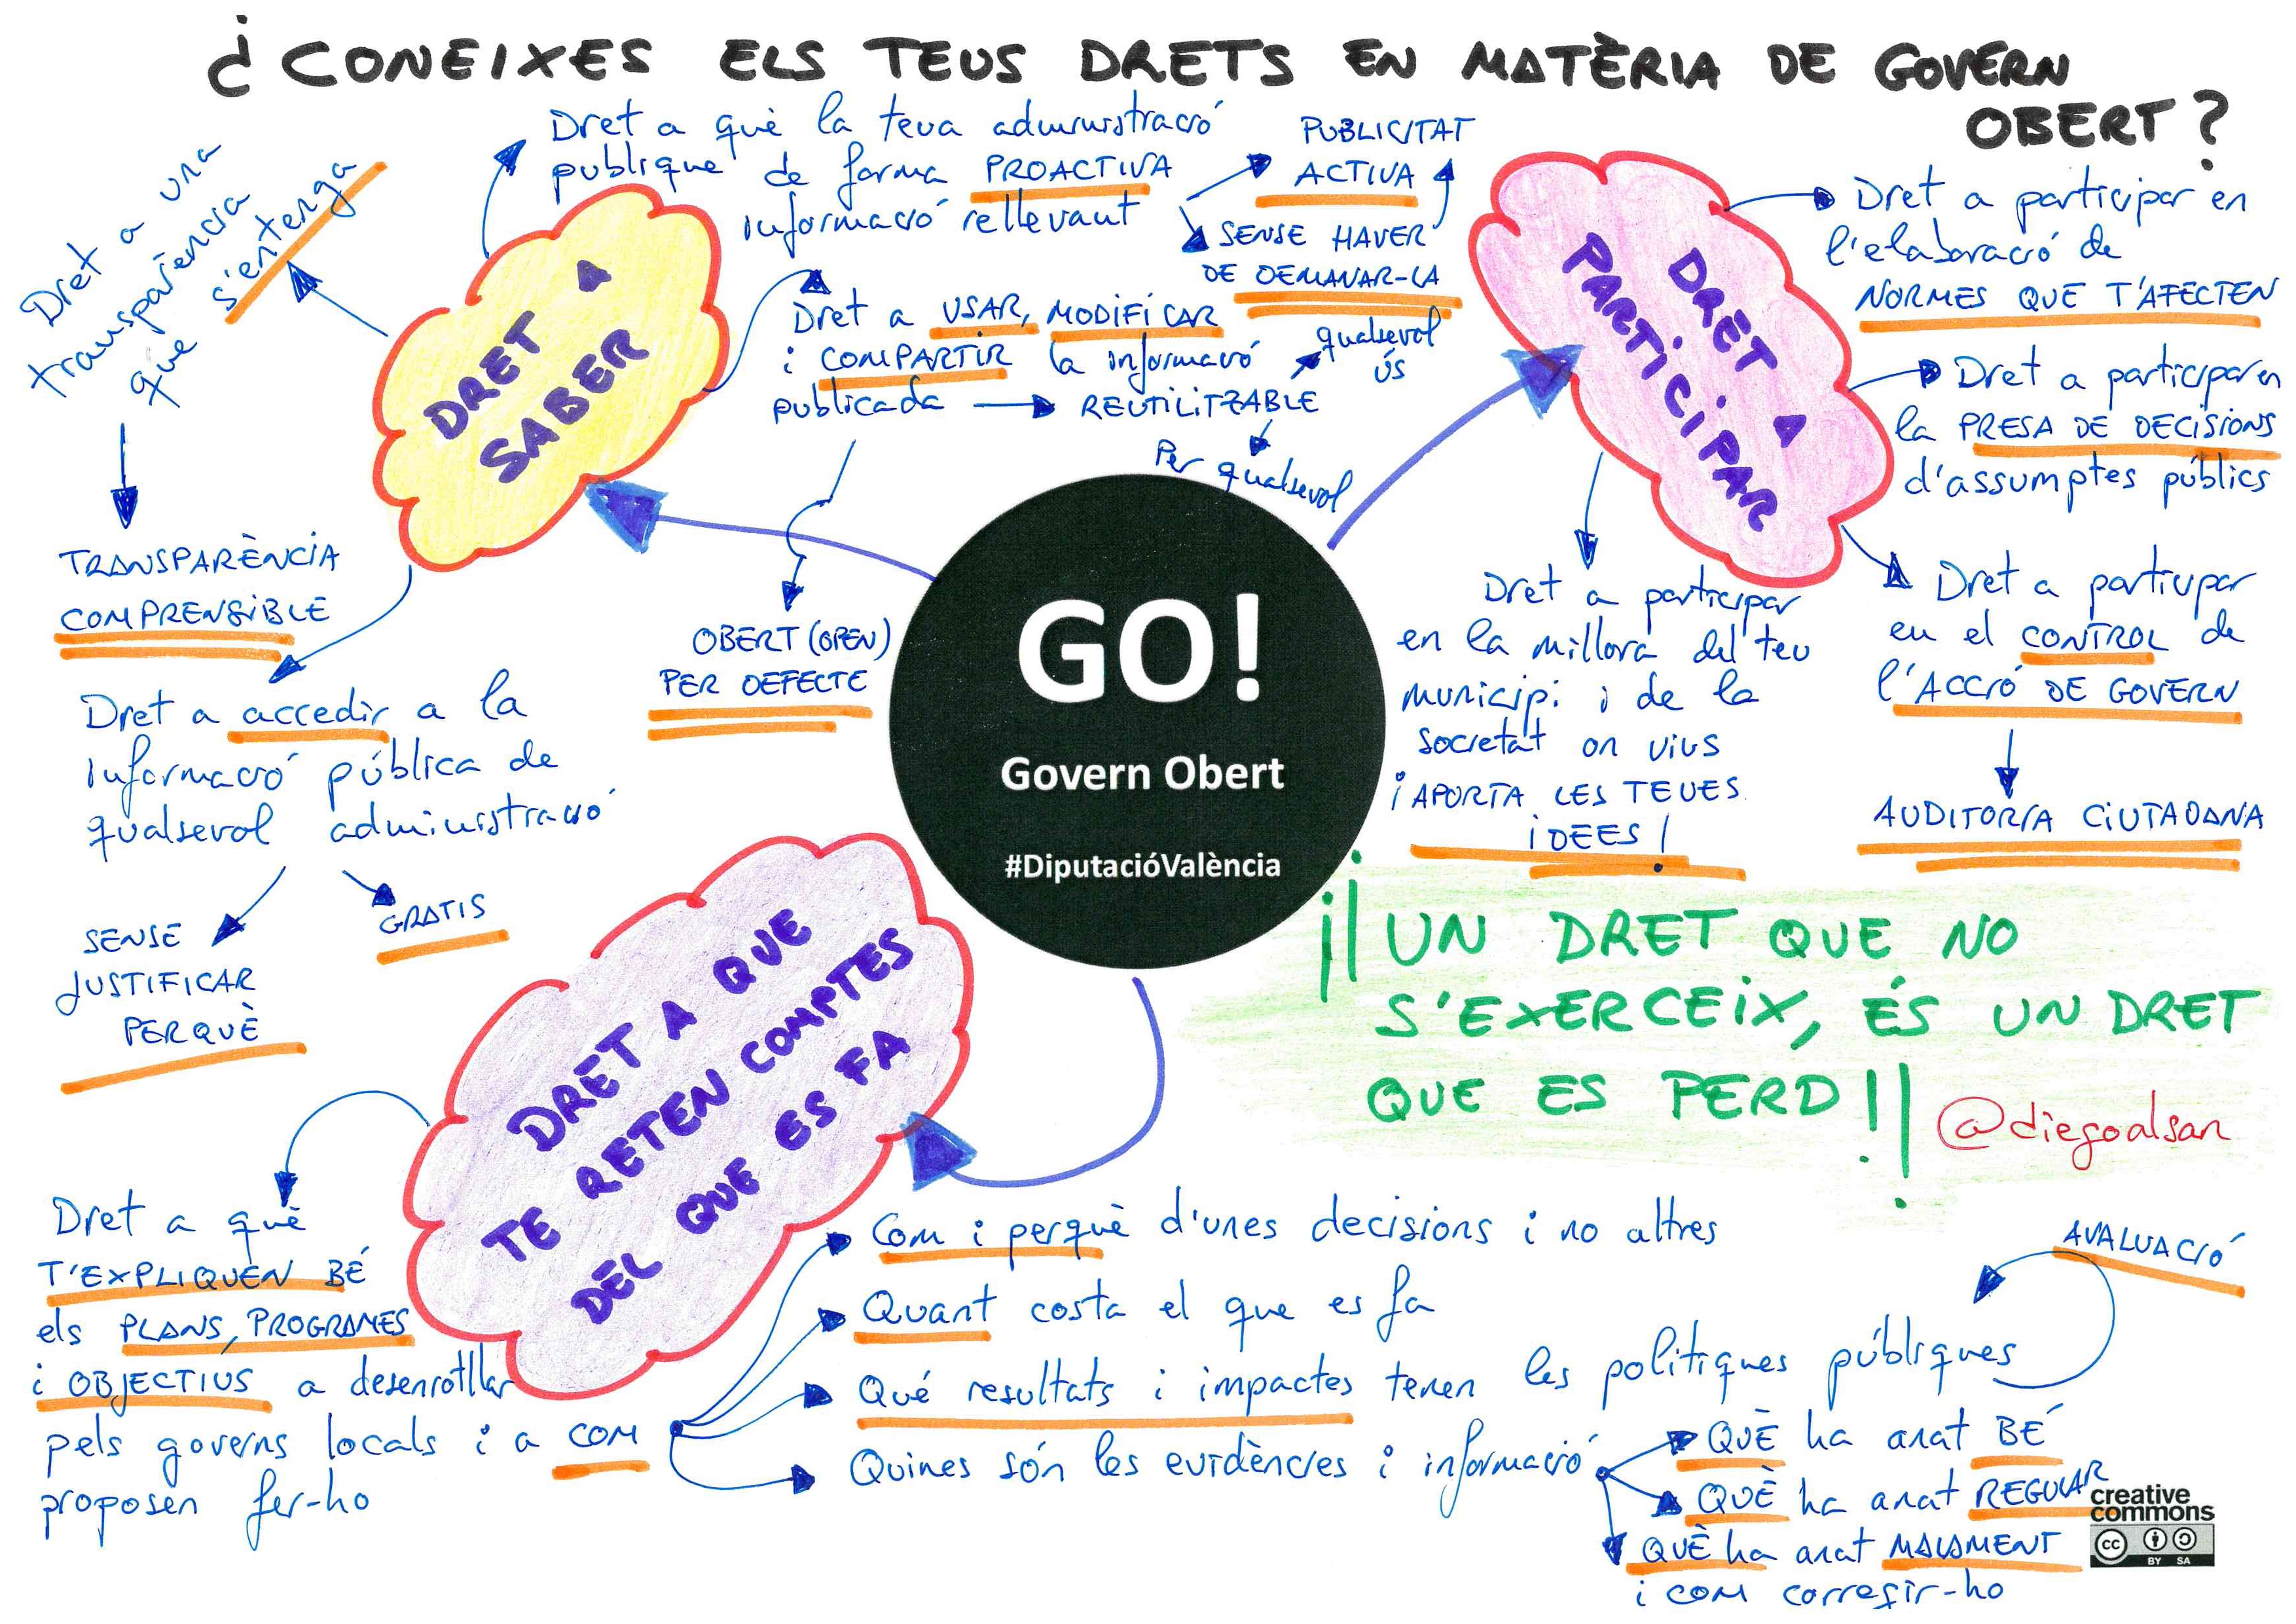 ¿CONEIXES ELS TEUS DRETS EN MATÈRIA DE GOVERN
OBERT?
DRET A
SABER
Dret a una
transparència
que s'entenga
TRANSPARÈNCIA
COMPRENSIBLE
Dret a què la teua administració
publique de forma PROACTIVA
informació rellevant
PUBLICITAT
ACTIVA
SENSE HAVER
DE DEMANAR-LA
Dret a USAR, MODIFICAR
i COMPARTIR la informació
publicada
REUTILITZABLE
qualsevol
ús
Per qualsevol
OBERT (OPEN)
PER DEFECTE
Dret a accedir a la
informació pública de
qualsevol administració
SENSE
JUSTIFICAR
PERQUÈ
GRATIS
GO!
Govern Obert
#DiputacióValència
DRET A
PARTICIPAR
Dret a participar en
l'elaboració de
NORMES QUE T'AFECTEN
Dret a participar en
la PRESA DE DECISIONS
d'assumptes públics
Dret a participar
en el CONTROL de
l'ACCIÓ DE GOVERN
AUDITORIA CIUTADANA
Dret a participar
en la millora del teu
municipi i de la
societat on vius
¡APORTA LES TEUES
IDEES!
¡¡UN DRET QUE NO
S'EXERCEIX, ÉS UN DRET
QUE ES PERD!!
@diegoalsan
DRET A QUE
TE RETEN COMPTES
DEL QUE ES FA
Dret a què
T'EXPLIQUEN BÉ
els PLANS, PROGRAMES
i OBJECTIUS a desenrotllar
pels governs locals i a COM
proposen fer-ho
Com i perquè d'unes decisions i no altres
Quant costa el que es fa
Qué resultats i impactes tenen les polítiques públiques
AVALUACIÓ
Quines són les evidències i informació
QUÈ ha anat BÉ
QUÈ ha anat REGULAR
QUÈ ha anat MALAMENT
i com corregir-ho
creative
commons
cc
BY SA